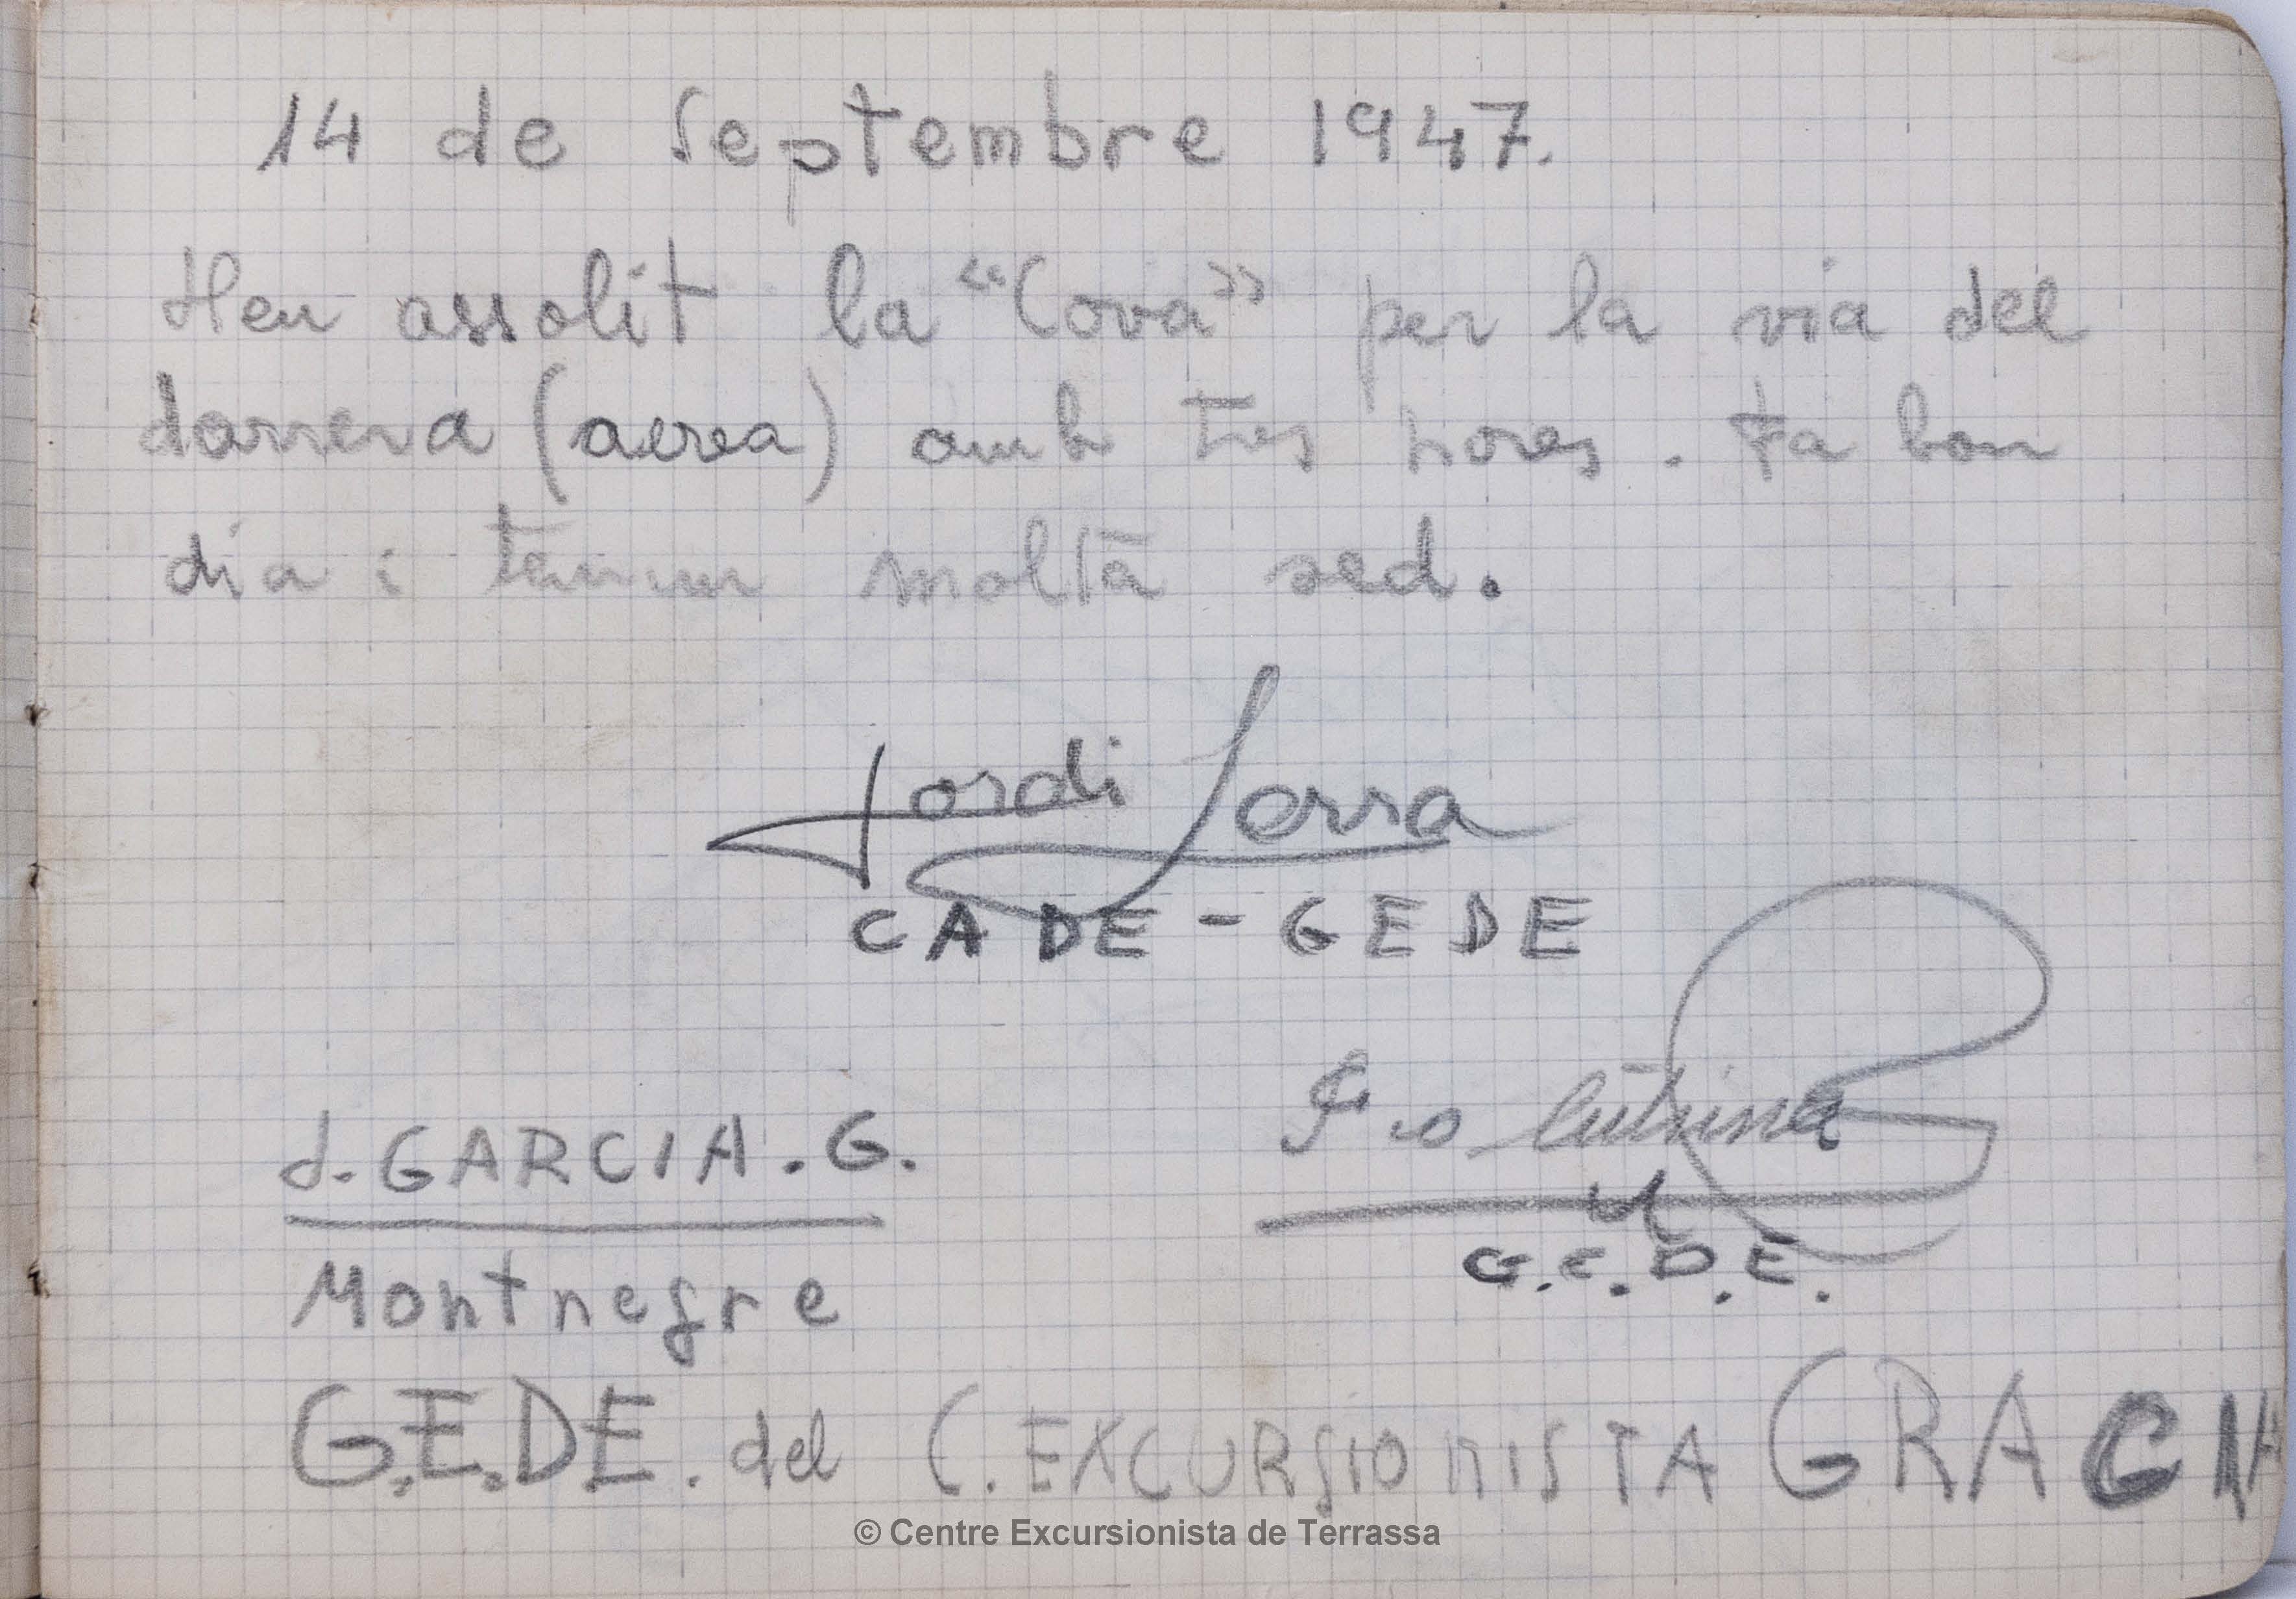 14 de Septembre 1947.
Hem assolit la "Cova" per la via del
darrera (aerea) amb tres hores. Fa bon
dia i tenim molta sed.
Jordi Serra
CADE - GEDE
J. GARCIA. G.
G.E.D.E.
Montnegre
G.E.DE. del C. EXCURSIONISTA GRACIA
© Centre Excursionista de Terrassa